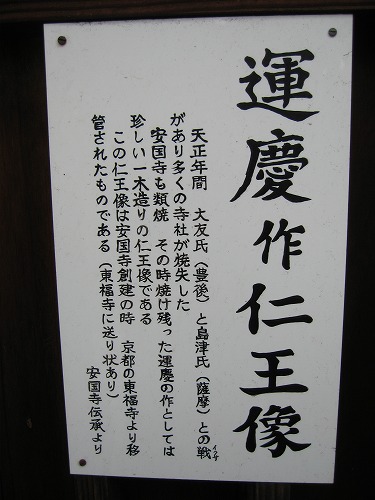 運慶作仁王像
天正年間　大友氏（豊後）と島津氏（薩摩）との戦
イクサ
があり多くの寺社が焼失した
安国寺も類焼　その時焼け残った運慶の作としては
珍しい一木造りの仁王像である
この仁王像は安国寺創建の時　京都の東福寺より移
管されたものである（東福寺に送り状あり）
安国寺伝承より